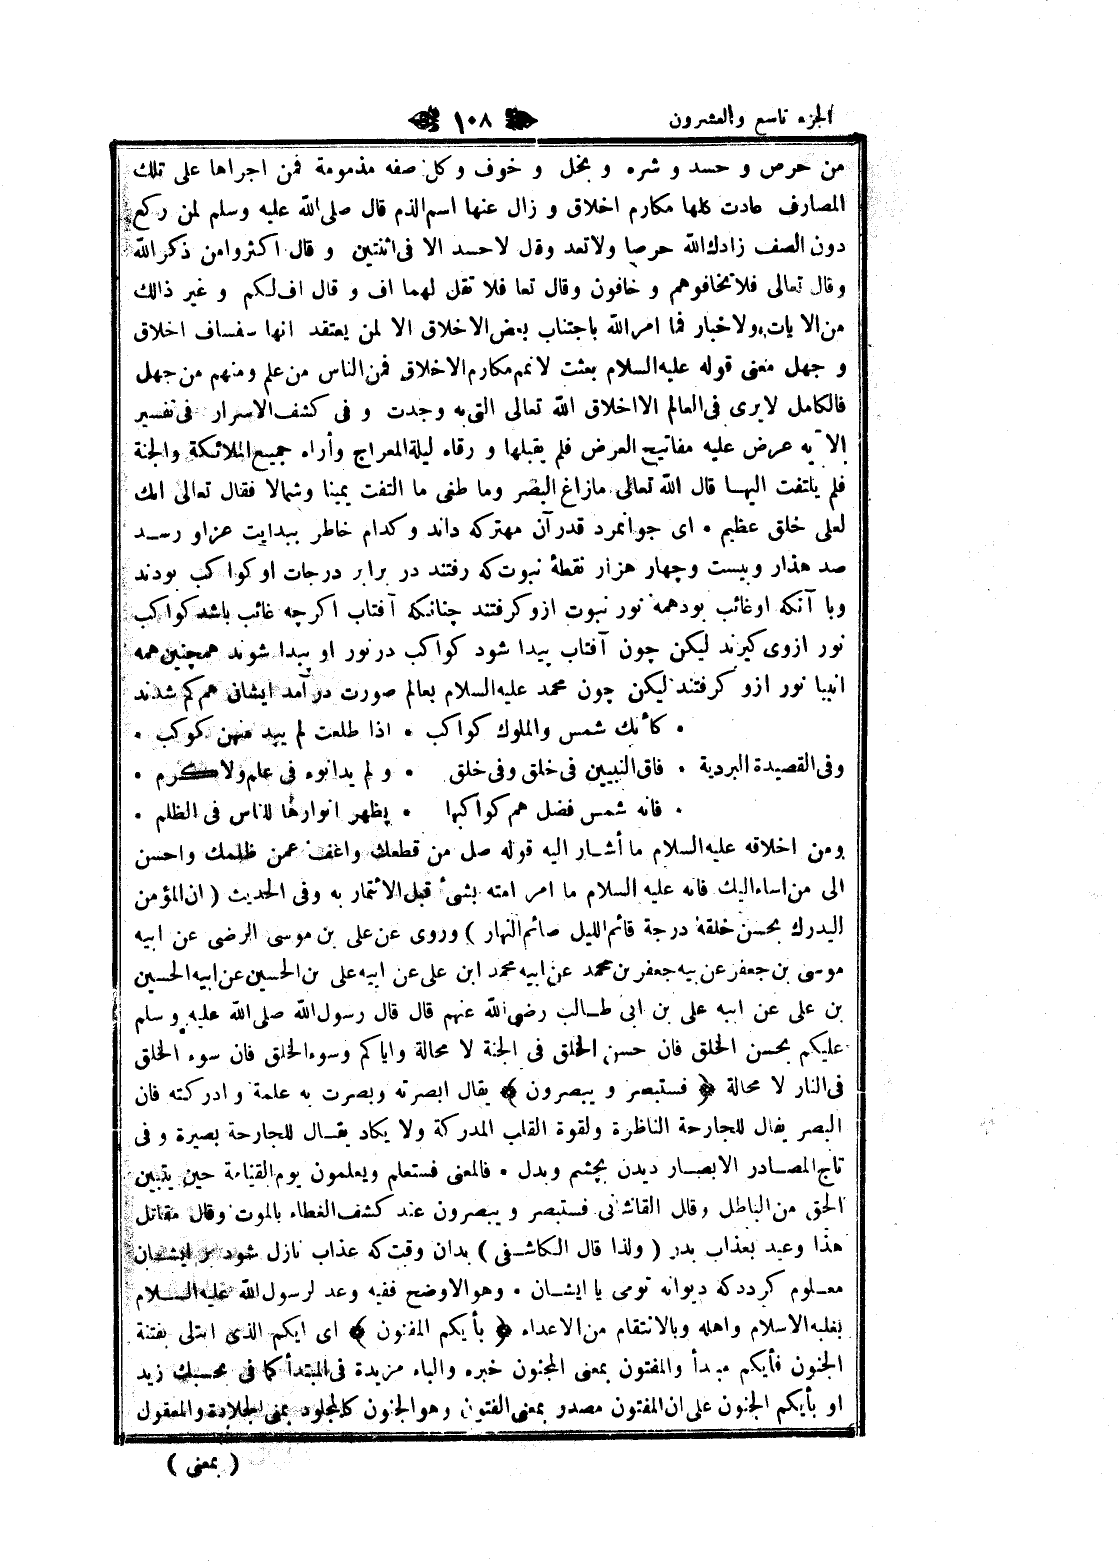 الجزء تاسع والعشرون
١٠٨
من حرص و حسد و شره و بخل و خوف وكل صفه مذمومة فمن اجراها على تلك
المصارف عادت كلها مكارم اخلاق و زال عنها اسم الذم قال صلى الله عليه وسلم لمن ركع
دون الصف زادك الله حرصا ولا تعد وقل لاحسد الا فى اثنتين و قال اكثروا من ذكر الله
وقال تعالى فلا تخافوهم و خافون وقال تعا فلا تقل لهما اف و قال اف لكم و غير ذالك
من الايات ولاخبار فما امر الله باجتناب بعض الاخلاق الا لمن يعتقد انها سفساف اخلاق
و جهل معنى قوله عليه السلام بعثت لاتمم مكارم الاخلاق فمن الناس من علم ومنهم من جهل
فالكامل لا يرى فى العالم الا اخلاق الله تعالى التى به وجدت و فى كشف الاسرار فى تفسير
الآيه عرض عليه مفاتيح العرض فلم يقبلها و رقاه ليلة المعراج وأراه جميع الملائكة والجنة
فلم يلتفت اليها قال الله تعالى مازاغ البصر وما طغى ما التفت يمينا وشمالا فقال تعالى انك
لعلى خلق عظيم • اى جوانمرد قدر آن مهتركه داند وكدام خاطر ببدايت عزاو رسد
صد هذار وبيست وچهار هزار نقطۀ نبوت كه رفتند در برابر درجات او كواكب بودند
وبا آنكه اوغائب بودهمه نور نبوت ازو كرفتند چنانكه آفتاب اكرچه غائب باشد كواكب
نور ازوى كيرند ليكن چون آفتاب پيدا شود كواكب در نور او پيدا شوند همچنين همه
انبيا نور ازو كرفتند ليكن چون محمد عليه السلام بعالم صورت درآمد ايشان هم كم شدند
• كأنك شمس والملوك كواكب • اذا طلعت لم يبد منهن كوكب •
وفى القصيدة البردية • فاق النبيين فى خلق وفى خلق • و لم يدانوه فى علم ولا كرم •
• فانه شمس فضل هم كواكبها • يظهر انوارها للناس فى الظلم •
ومن اخلاقه عليه السلام ما أشار اليه قوله صل من قطعك واغف عمن ظلمك واحسن
الى من اساء اليك فانه عليه السلام ما امر امته بشئ قبل الائتمار به وفى الحديث ( ان المؤمن
اليدرك بحسن خلقه درجة قائم الليل صائم النهار ) وروى عن على بن موسى الرضى عن ابيه
موسى بن جعفر عن بيه جعفر بن محمد عن ابيه محمد ابن على عن ابيه على بن الحسين عن ابيه الحسين
بن على عن ابيه على بن ابى طالب رضى الله عنهم قال قال رسول الله صلى الله عليه وسلم
عليكم بحسن الخلق فان حسن الخلق فى الجنة لا محالة واياكم وسوء الخلق فان سوء الخلق
فى النار لا محالة ﴿ فستبصر و يبصرون ﴾ يقال ابصرته وبصرت به علمة و ادركته فان
البصر يقال للجارحة الناظرة ولقوة القلب المدركة ولا يكاد يقال للجارحة بصيرة و فى
تاج المصادر الابصار ديدن بچشم وبدل • فالمعنى فستعلم ويعلمون يوم القيامة حين يتبين
الحق من الباطل وقال القاشانى فستبصر و يبصرون عند كشف الغطاء بالموت وقال مقاتل
هذا وعيد بعذاب بدر ( ولذا قال الكاشفى ) بدان وقت كه عذاب نازل شود بر ايشان
معلوم كردد كه ديوانه تويى يا ايشان • وهو الاوضح ففيه وعد لرسول الله عليه السلام
بغلبه الاسلام واهله وبالانتقام من الاعداء ﴿ بأيكم المفتون ﴾ اى ايكم الذى ابتلى بفتنة
الجنون فأيكم مبدأ والمفتون بمعنى المجنون خبره والباء مزيدة فى المبتدأ كما فى بحسبك زيد
او بأيكم الجنون على ان المفتون مصدو بمعنى الفتون وهو الجنون كالمجلود بمعنى الجلادة والمعقول
( بمعنى )